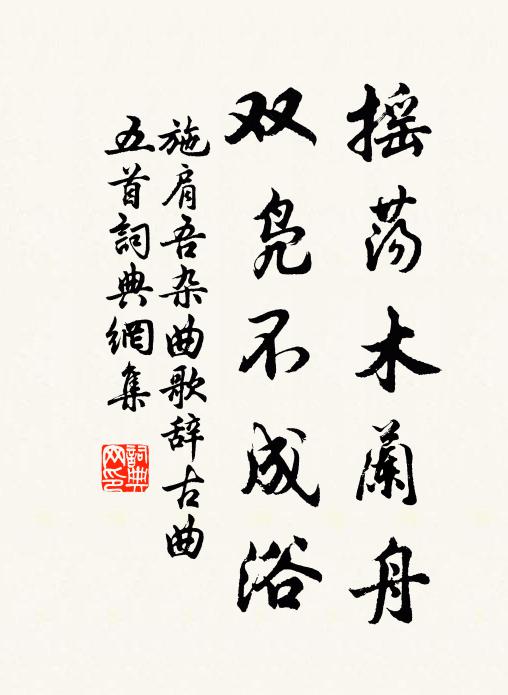 摇荡木蘭舟
双凫不成浴
施肩吾杂曲歌辞古曲
五首詞典網集
詞典网印